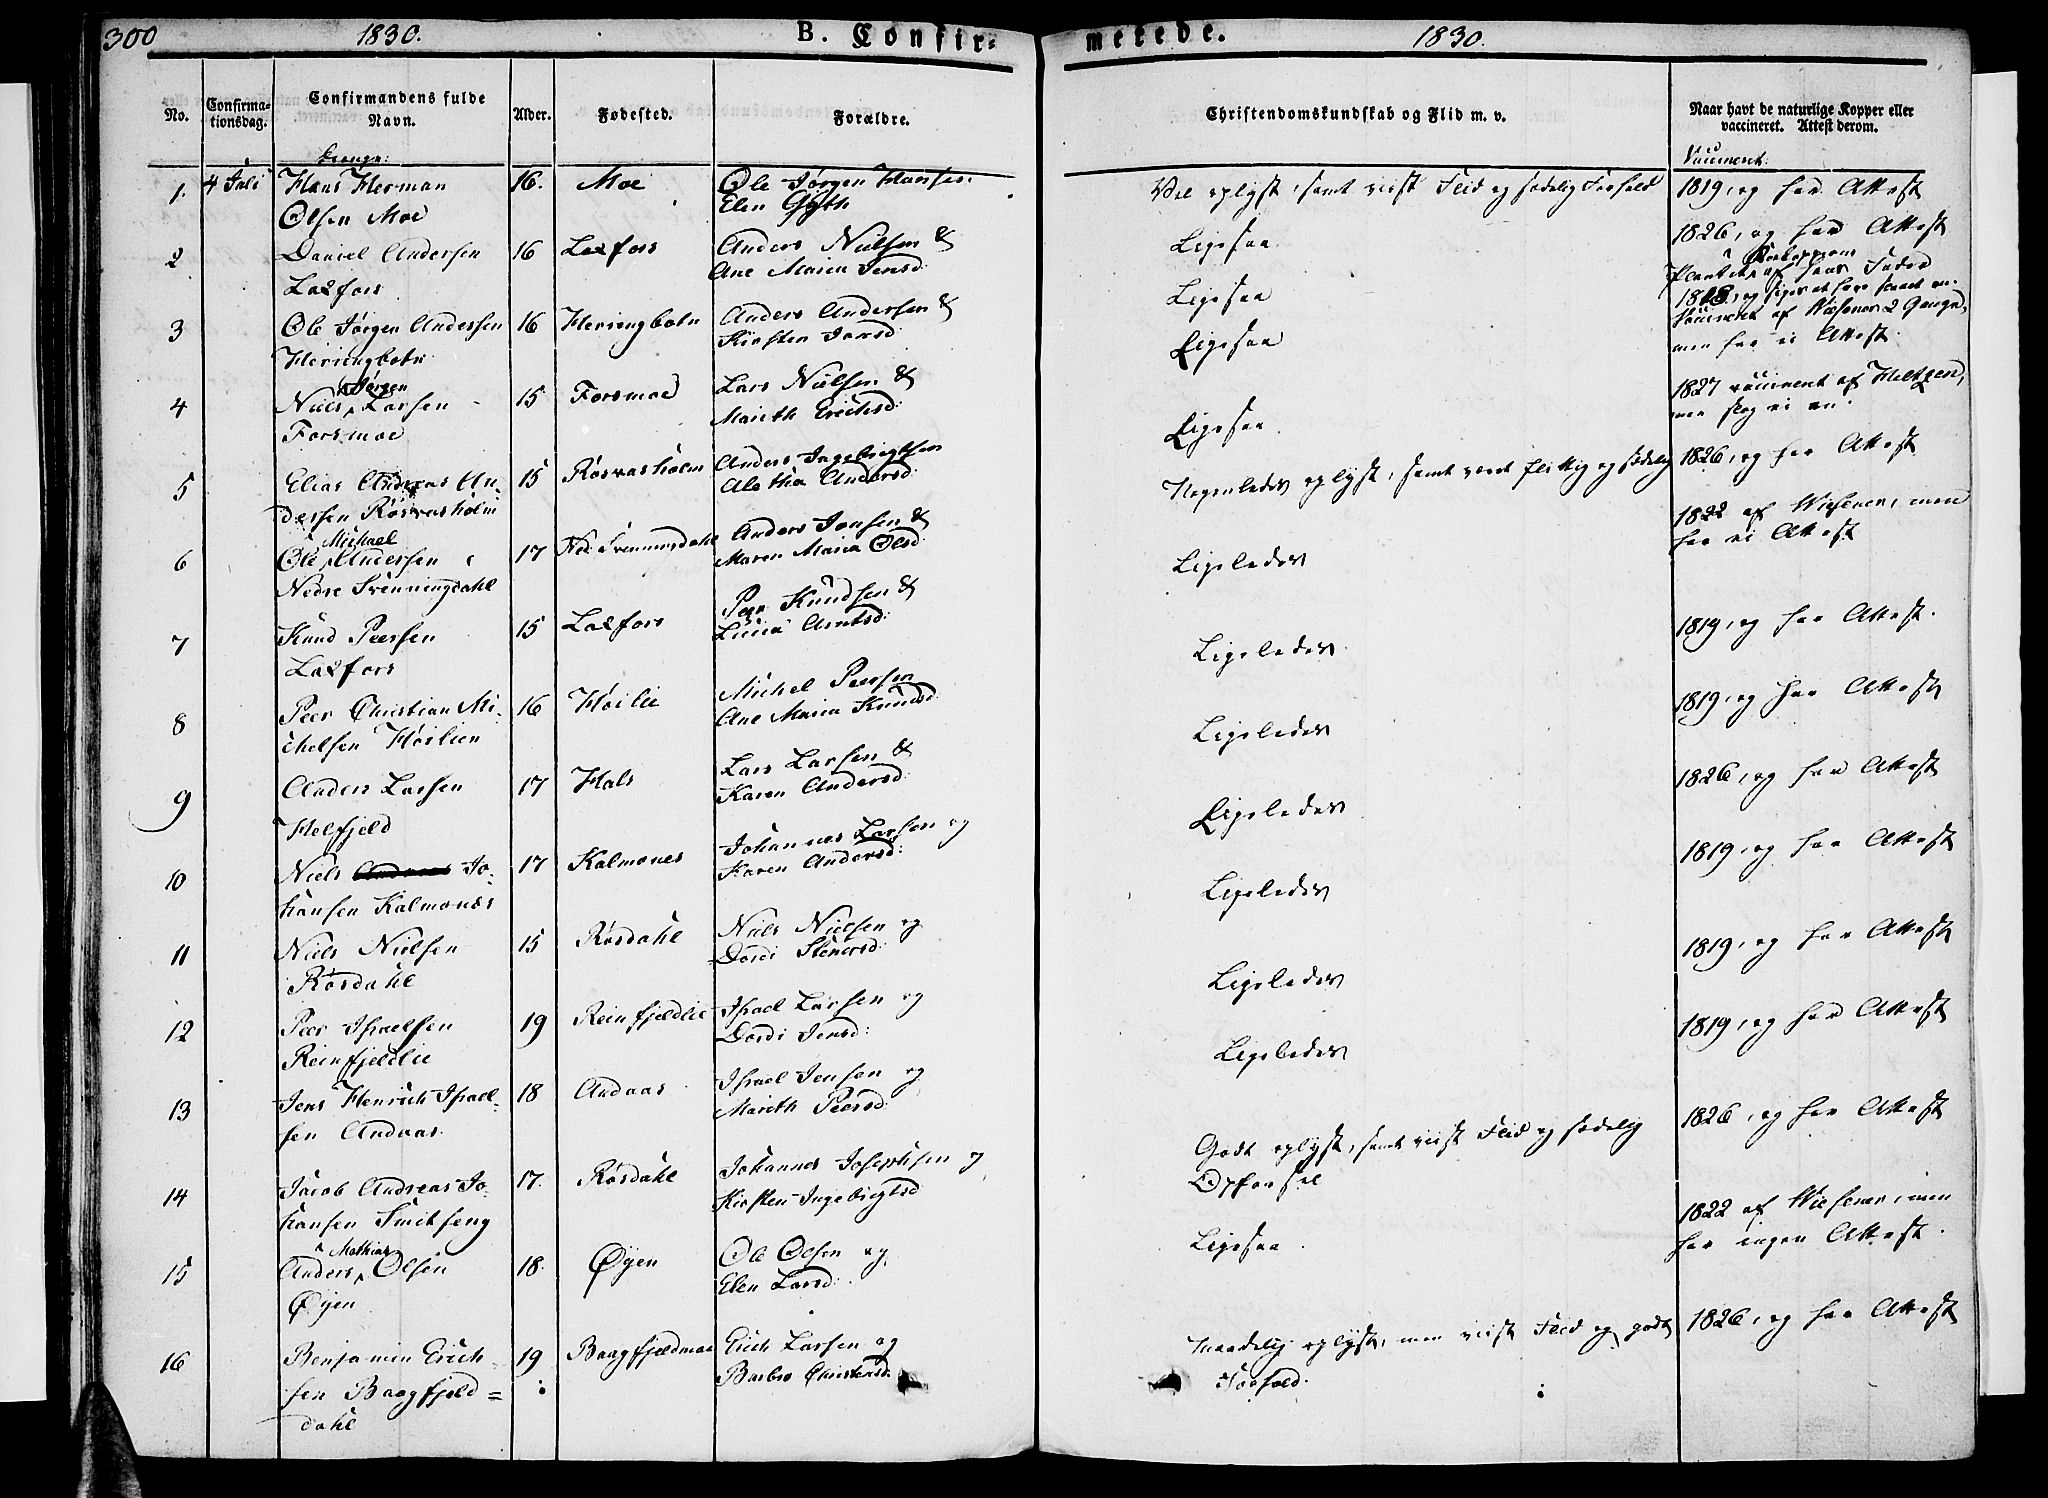 300 1830. B. Confirmerede. 1830.
No. Confirmationsdag. Confirmandens fulde Navn. Alder. Fødested. Forældre. Christendomskundskab og Flid m. v. Naar havt de naturlige Kopper eller vaccineret. Attest derom.
Drenge:
1. 4 Juli Hans Herman 16. Moe Ole Jørgen Hansen Vel oplyst, samt viist Flid og sædelig Forhold 1819, og har Attest
Olsen Moe Elen Gyth
2 Daniel Andersen 16 Laxfors Anders Nielsen & Ligesaa. 1826, og har Attest
Laxfors Ane Maria Jensd:
3 Ole Jørgen Andersen 16 Heringbotn Anders Andersen & Ligesaa
Heringbotn Kirsten Jonsd: men har ei Attest.
4 Niels Jørgen Larsen 15 Forsmoe Lars Nielsen & Ligesaa 1827 vaccineret af Heltzen,
Forsmoe Marith Erichsd: men slog ei an.
5 Elias Andreas An- 15 Røsvasholm Anders Ingebrigtsen Nogenledes oplyst, samt været flittig og sædelig 1826, og har Attest
dersen Røsvasholm Aletha Andersd:
6 Ole Michael Andersen 17 Ned: Svenningdahl Anders Jonsen & Ligeledes 1822 af Wisener, men
Nedre Svenningdahl Maren Maria Olsd: har ei Attest
7 Knud Peersen 15 Laxfors Peer Knudsen & Ligeledes 1819, og har Attest.
Laxfors Lucia Arntsd:
8 Peer Christian Mi- 16 Høilie Michel Peersen Ligeledes 1819, og har Attest
chelsen Høilien Ane Maria Knudsd:
9 Anders Larsen 17 Hals Lars Larsen & Ligeledes 1826, og har Attest
Helfjeld Karen Andersd:
10 Niels Jo- 17 Kalmones Johannes Larsen og Ligeledes 1819, og har Attest
hansen Kalmones Karen Andersd:
11 Niels Nielsen 15 Røsdahl Niels Nielsen og Ligeledes 1819, og har Attest
Røsdahl Dordi Stenersd:
12 Peer Israelsen 19 Reinfjeldlie Israel Larsen og Ligeledes 1819, og har Attest
Reinfjeldlie Dordi Jensd:
13 Jens Henrich Israel- 18 Andaas Israel Jensen og Godt oplyst, samt viist Flid og sædelig 1826, og har Attest
sen Andaas Marith Peersd: Opførsel
14 Jacob Andreas Jo- 17. Røsdahl Johannes Josephsen og Ligesaa. 1822 af Wiesener, men
hansen Smitseng Kirsten Ingebrigtsd har ingen Attest.
15 Anders Mathias Olsen 18. Øyen Ole Olsen og
Øyen Elen Larsd:
16 Benjamin Erich- 19 Baagfjeldmoe Erich Larsen og Maadelig oplyst, men viist Flid og godt 1826, og har Attest
sen Baagfjeld- Barbro Christensd: Forhold.
dahl